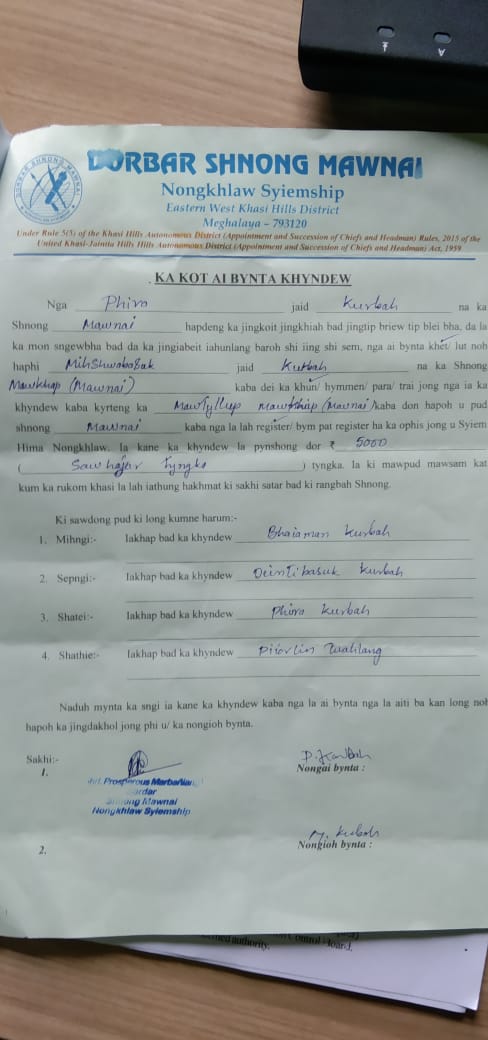 DORBAR SHNONG MAWNAI
DORBAR SHNONG MAWNAI
Nongkhlaw Syiemship
Eastern West Khasi Hills District
Meghalaya – 793120
Under Rule 5(5) of the Khasi Hills Autonomous District (Appointment and Succession of Chiefs and Headman) Rules, 2015 of the
United Khasi-Jaintia Hills Hills Autonomous District (Appointment and Succession of Chiefs and Headman) Act, 1959
KA KOT AI BYNTA KHYNDEW
Nga Phira jaid Kurbah na ka
Shnong Mawnai hapdeng ka jingkoit jingkhiah bad jingtip briew tip blei bha, da la
ka mon sngewbha bad da ka jingiabeit iahunlang baroh shi iing shi sem, nga ai bynta khet/ lut noh
haphi jaid Kurbah na ka Shnong
Mawkhap (Mawnai) kaba dei ka khun/ hymmen/ para/ trai jong nga ia ka
khyndew kaba kyrteng ka (Mawnai) kaba don hapoh u pud
shnong Mawnai kaba nga la lah register/ bym pat register ha ka ophis jong u Syiem
Hima Nongkhlaw. Ia kane ka khyndew la pynshong dor ₹ 5000
( Saw hajar tyngka ) tyngka. Ia ki mawpud mawsam kat
kum ka rukom khasi la lah iathung hakhmat ki sakhi satar bad ki rangbah Shnong.
Ki sawdong pud ki long kumne harum:-
1. Mihngi:- Iakhap bad ka khyndew Bhaiaman Kurbah
2. Sepngi:- Iakhap bad ka khyndew Deintibasuk Kurbah
3. Shatei:- Iakhap bad ka khyndew Phira Kurbah
4. Shathie:- Iakhap bad ka khyndew
Naduh mynta ka sngi ia kane ka khyndew kaba nga la ai bynta nga la aiti ba kan long noh
hapoh ka jingdakhol jong phi u/ ka nongioh bynta.
Sakhi:-
1.
Prosperous Marbaniang
Sardar
Shnong Mawnai
Nongkhlaw Syiemship
Kurbah
Nongai bynta :
Kurbah
Nongioh bynta :
2.
authority.
Control Board.